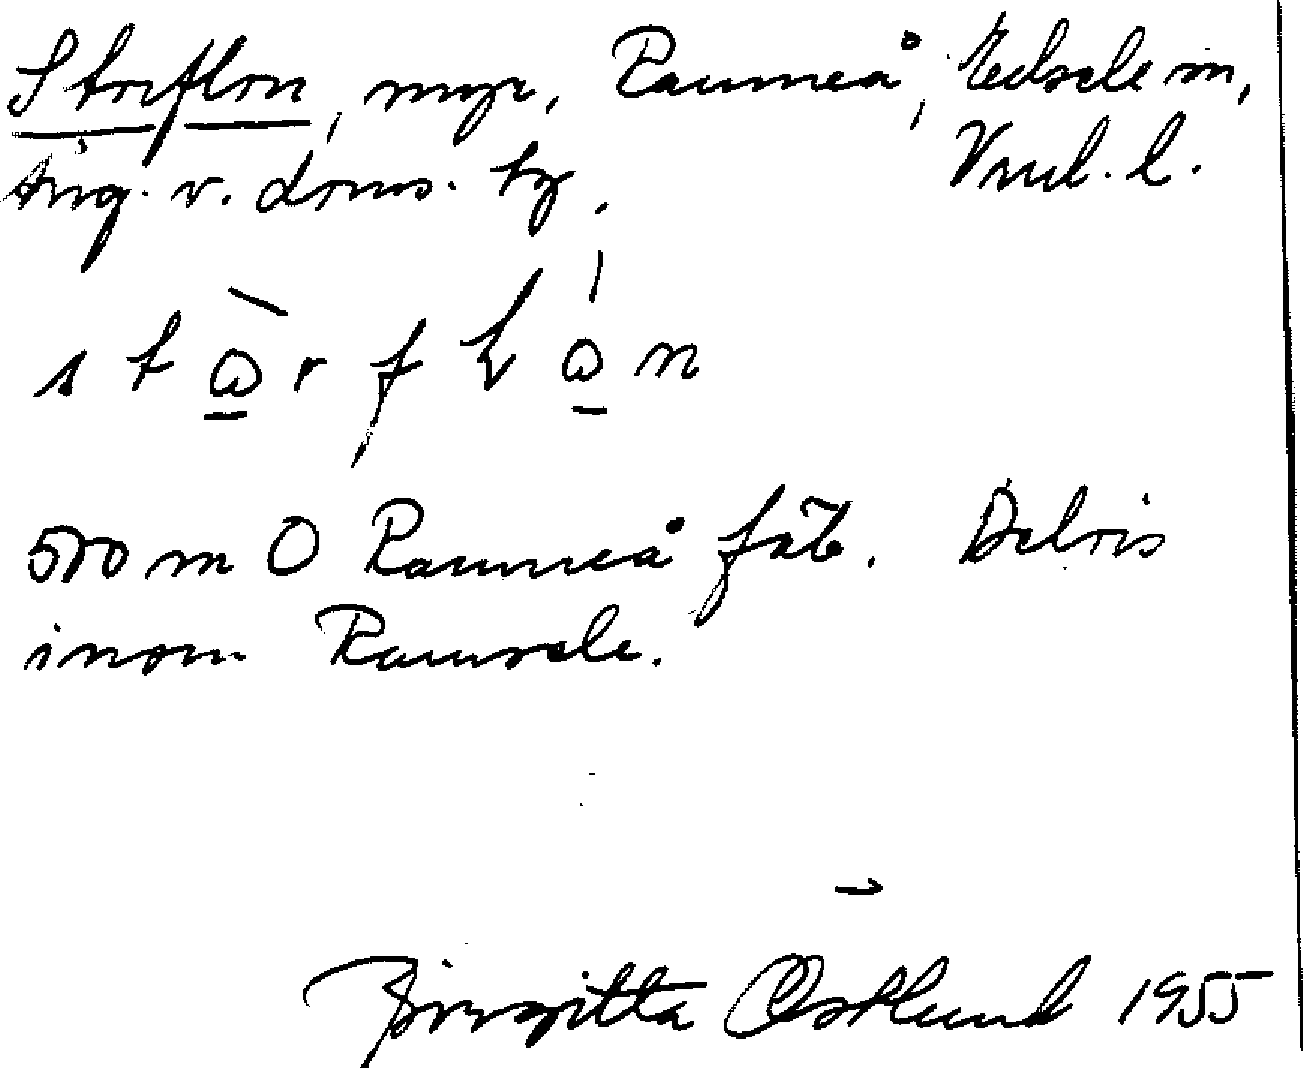 Storflon, myr, Raumeå, Edsele sn,
Ång. v. doms. tg. Vnrl. l.
s t ὼ̱ r f ɫ ώ̱ n
500 m O Raumeå fäb. Delvis
inom Ramsele.
Birgitta Östlund 1955